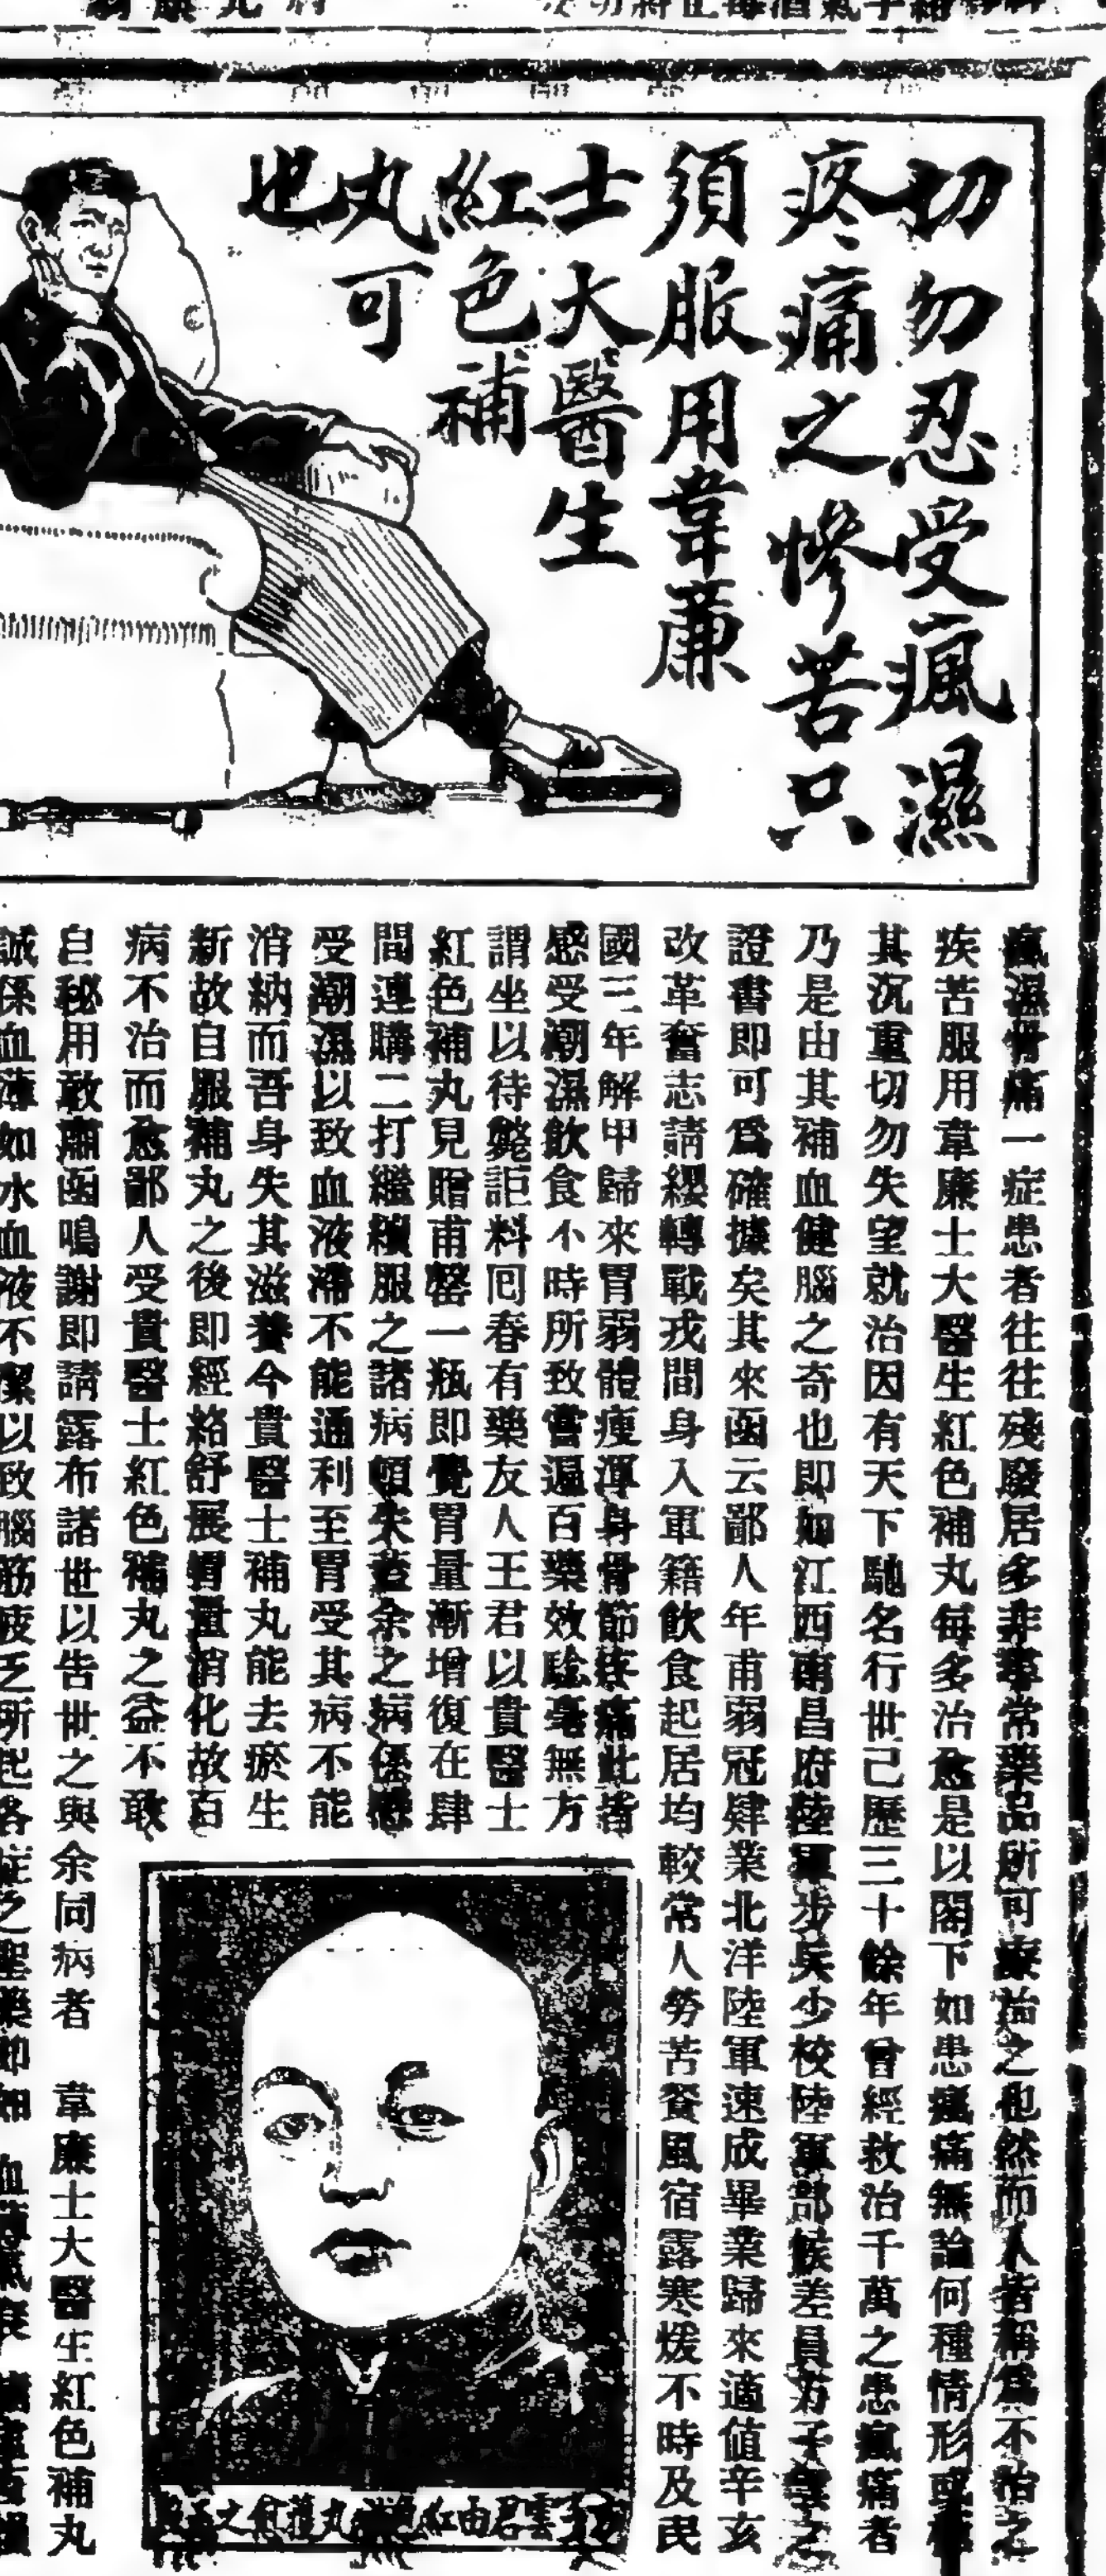 切勿忍受瘋濕
疼痛之慘苦只
須服用韋廉
士大醫生
紅色補
丸可
也
瘋濕骨痛一症患者往往殘廢居多非尋常藥品所可療治之也然而人皆稱爲不治之
疾苦服用韋廉士大醫生紅色補丸每多治愈是以閣下如患瘋痛無論何種情形或極
其沉重切勿失望就治因有天下馳名行世已歷三十餘年曾經救治千萬之患瘋痛者
乃是由其補血健腦之奇也即如江西南昌府陸軍步兵少校陸軍部候差員方子雲之
證書即可爲確據矣其來函云鄙人年甫弱冠肄業北洋陸軍速成畢業歸來適值辛亥
改革奮志請纓轉戰戎間身入軍籍飲食起居均較常人勞苦餐風宿露寒煖不時及民
國三年解甲歸來胃弱體瘦渾身骨節疼痛此皆
感受潮濕飲食不時所致嘗遍百藥效騐毫無方
謂坐以待斃詎料囘春有藥友人王君以貴醫士
紅色補丸見贈甫罄一瓶即覺胃量漸增復在肆
間連購二打繼續服之諸病頓失蓋余之病係
受潮濕以致血液滯不能通利至胃受其病不能
消納而吾身失其滋養今貴醫士補丸能去瘀生
新故自服補丸之後即經絡舒展胃量消化故百
病不治而愈鄙人受貴醫士紅色補丸之益不敢
自秘用敢肅函鳴謝即請露布諸世以告世之與余同病者 韋廉士大醫生紅色補丸
誠係血薄如水血液不潔以致腦筋疲乏所起各症之聖藥即如
方子雲君由紅色補丸獲愈之